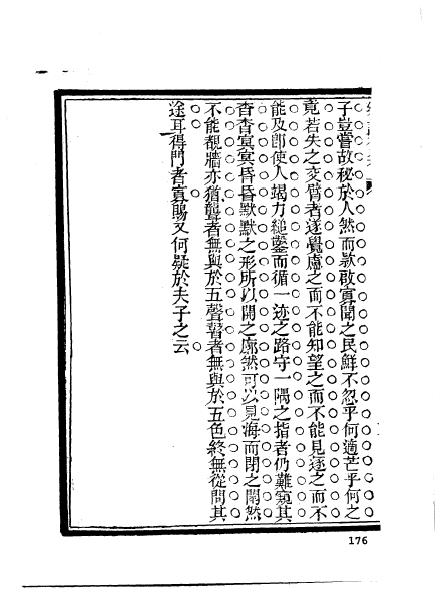 子豈嘗故秘於人然而款啟寡聞之民鮮不忽乎何適芒乎何之
竟若失之交臂者遂覺慮之而不能知望之而不能見逐之而不
能及卽使人竭力鎚鑿而循一迹之路守一隅之指者仍難窺其
杳杳冥冥昏昏默默之形所以開之廓然可以見海而閉之闇然
不能覩牆亦猶聾者無與於五聲瞽者無與於五色終無從問其
途耳得門者寡賜又何疑於夫子之云
176